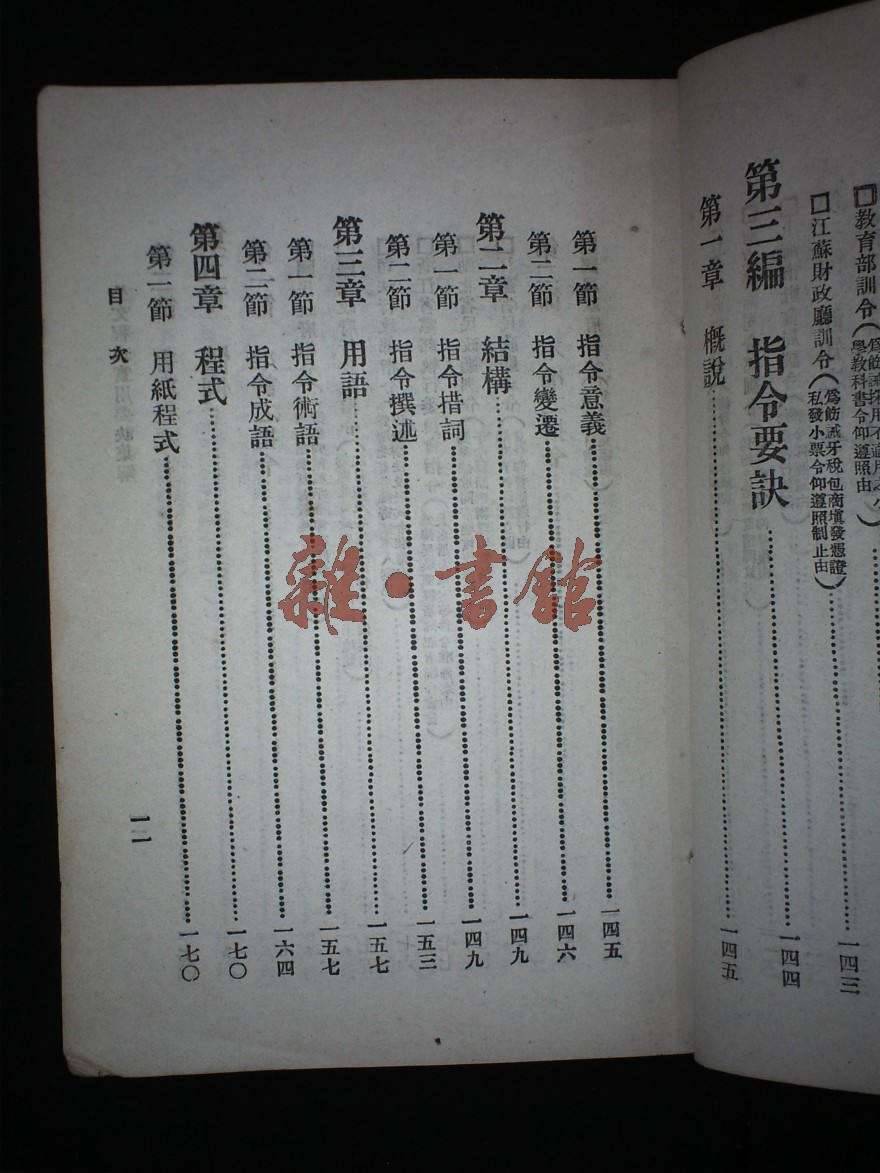 □教育部訓令(爲飭誡採用不適用之小
學教科書令仰遵照由
□江蘇財政廳訓令(爲飭誡牙稅包商填發憑證
私發小票令仰遵照制止由)……一四三
第三編 指令要訣……一四四
第一章 概說……一四五
第一節 指令意義……一四五
第二節 指令變遷……一四六
第二章 結構……一四九
第一節 指令措詞……一四九
第二節 指令撰述……一五三
第三章 用語……一五七
第一節 指令術語……一五七
第二節 指令成語……一六四
第四章 程式……一七〇
第一節 用紙程式……一七〇
目次
一一
雜·書館